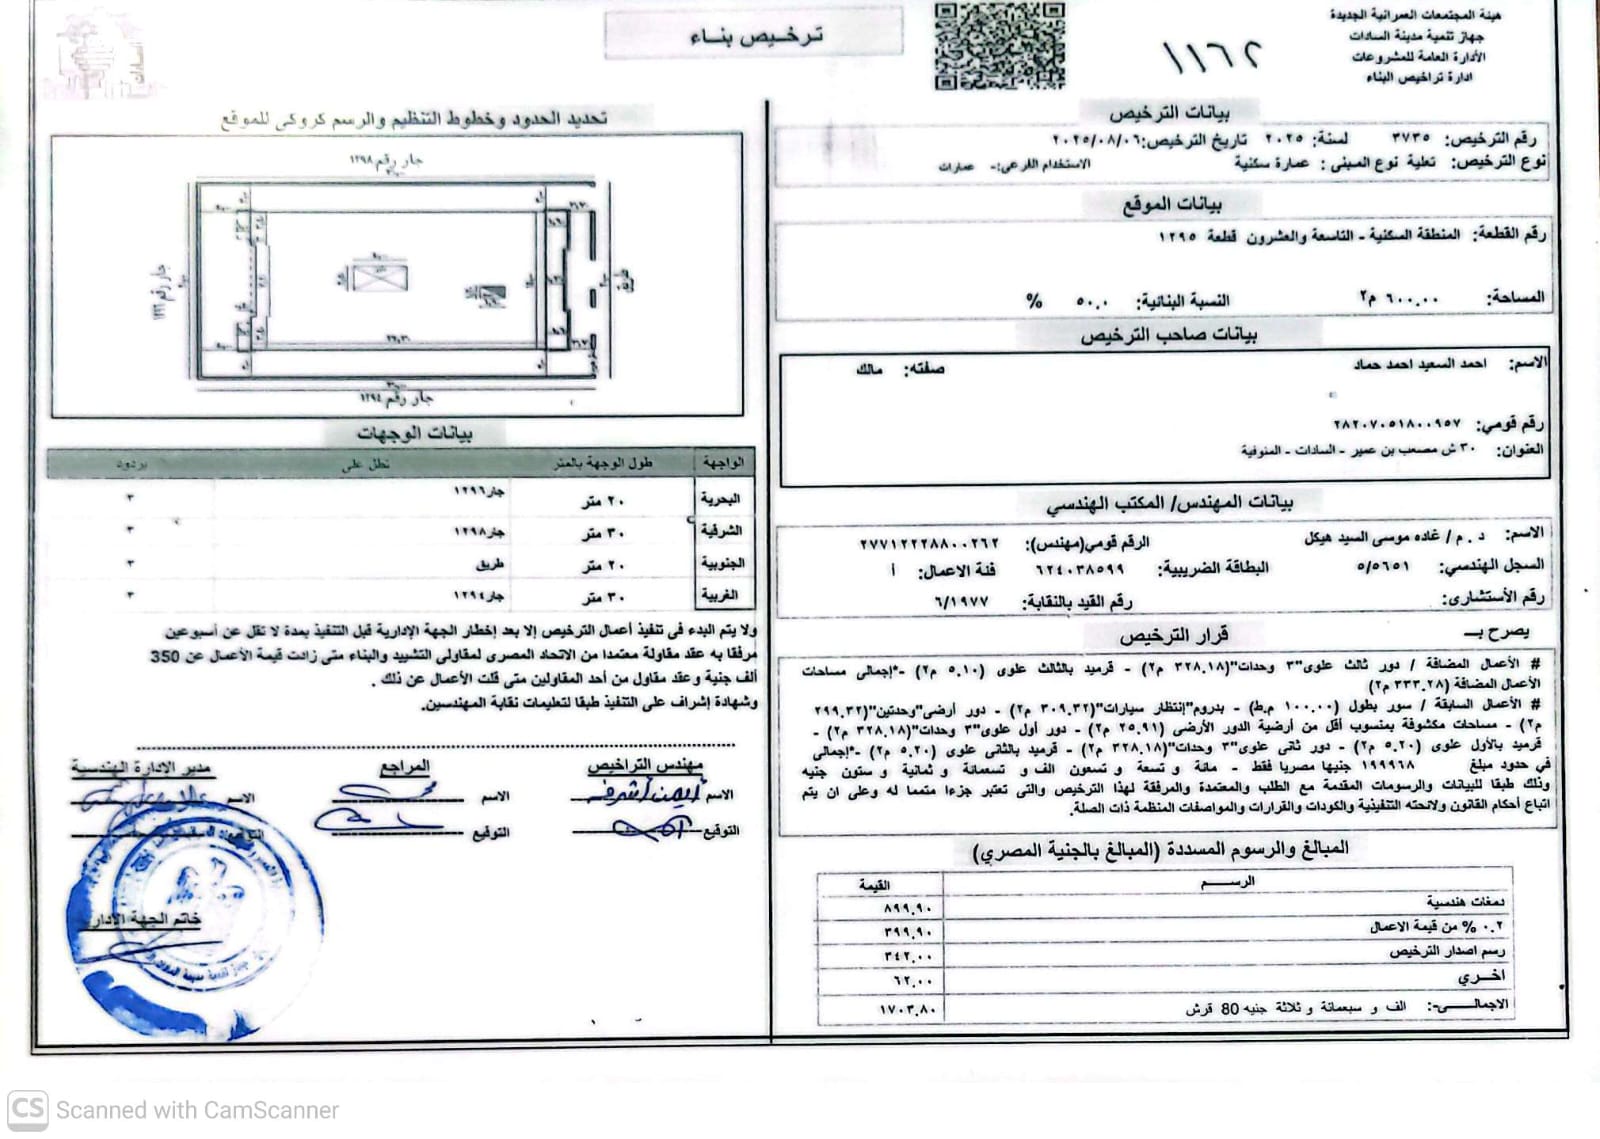 هيئة المجتمعات العمرانية الجديدة
جهاز تنمية مدينة السادات
الأدارة العامة للمشروعات
ادارة تراخيص البناء
١١٦٢
ترخيص بناء
السادات
بيانات الترخيص
رقم الترخيص: ٣٧٣٥ لسنة: ٢٠٢٥ تاريخ الترخيص: ٢٠٢٥/٠٨/٠٦
نوع الترخيص: تعلية نوع المبنى : عمارة سكنية الاستخدام الفرعي:- عمارات
بيانات الموقع
رقم القطعة: المنطقة السكنية - التاسعة والعشرون قطعة ١٢٩٥
المساحة: ٦٠٠.٠٠ م٢ النسبة البنائية: ٥٠.٠ %
بيانات صاحب الترخيص
الاسم: احمد السعيد احمد حماد صفته: مالك
رقم قومي: ٢٨٢٠٧٠٥١٨٠٠٩٥٧
العنوان: ٣٠ ش مصعب بن عمير - السادات - المنوفية
بيانات المهندس/ المكتب الهندسي
الاسم: د . م / غاده موسى السيد هيكل الرقم قومي(مهندس): ٢٧٧١٢٢٢٨٨٠٠٢٦٢
السجل الهندسي: ٥/٥٦٥١ البطاقة الضريبية: ٦٢٤٠٣٨٥٩٩ فئة الاعمال: أ
رقم الأستشارى: رقم القيد بالنقابة: ٦/١٩٧٧
يصرح بـــ قرار الترخيص
# الأعمال المضافة / دور ثالث علوى"٣ وحدات"(٣٢٨.١٨ م٢) - قرميد بالثالث علوى (٥.١٠ م٢) -*إجمالى مساحات
الأعمال المضافة (٣٣٣.٢٨ م٢)
# الأعمال السابقة / سور بطول (١٠٠.٠٠ م.ط) - بدروم"إنتظار سيارات"(٣٠٩.٣٢ م٢) - دور أرضى"وحدتين"(٢٩٩.٣٢
م٢) - مساحات مكشوفة بمنسوب أقل من أرضية الدور الأرضى (٢٥.٩١ م٢) - دور أول علوى"٣ وحدات"(٣٢٨.١٨ م٢) -
قرميد بالأول علوى (٥.٢٠ م٢) - دور ثانى علوى"٣ وحدات"(٣٢٨.١٨ م٢) - قرميد بالثانى علوى (٥.٢٠ م٢) -*إجمالى
في حدود مبلغ ١٩٩٩٦٨ جنيها مصريا فقط - مائة و تسعة و تسعون الف و تسعمائة و ثمانية و ستون جنيه
وذلك طبقا للبيانات والرسومات المقدمة مع الطلب والمعتمدة والمرفقة لهذا الترخيص والتى تعتبر جزءا متمما له وعلى ان يتم
اتباع أحكام القانون ولائحته التنفيذية والكودات والقرارات والمواصفات المنظمة ذات الصلة.
المبالغ والرسوم المسددة (المبالغ بالجنية المصري)
الرســـــم القيمة
دمغات هندسية ٨٩٩.٩٠
٠.٢ % من قيمة الاعمال ٣٩٩.٩٠
رسم اصدار الترخيص ٣٤٢.٠٠
اخـــري ٦٢.٠٠
الاجمالـــــى:- الف و سبعمائة و ثلاثة جنيه 80 قرش ١٧٠٣.٨٠
تحديد الحدود وخطوط التنظيم والرسم كروكى للموقع
جار رقم ١٢٩٨
جار رقم ١٢٩٦
طريق
جار رقم ١٢٩٤
بيانات الوجهات
الواجهة طول الوجهة بالمتر تطل على بردود
البحرية ٢٠ متر جار١٢٩٦ ٣
الشرقية ٣٠ متر جار١٢٩٨ ٣
الجنوبية ٢٠ متر طريق ٣
الغربية ٣٠ متر جار١٢٩٤ ٣
ولا يتم البدء فى تنفيذ أعمال الترخيص إلا بعد إخطار الجهة الإدارية قبل التنفيذ بمدة لا تقل عن أسبوعين
مرفقا به عقد مقاولة معتمدا من الاتحاد المصرى لمقاولى التشييد والبناء متى زادت قيمة الأعمال عن 350
ألف جنية وعقد مقاول من أحد المقاولين متى قلت الأعمال عن ذلك .
وشهادة إشراف على التنفيذ طبقا لتعليمات نقابة المهندسين.
مهندس التراخيص المراجع مدير الادارة الهندسية
الاسم أيمن أشرف الاسم الاسم
التوقيع التوقيع التوقيع
خاتم الجهة الادارية
CS Scanned with CamScanner